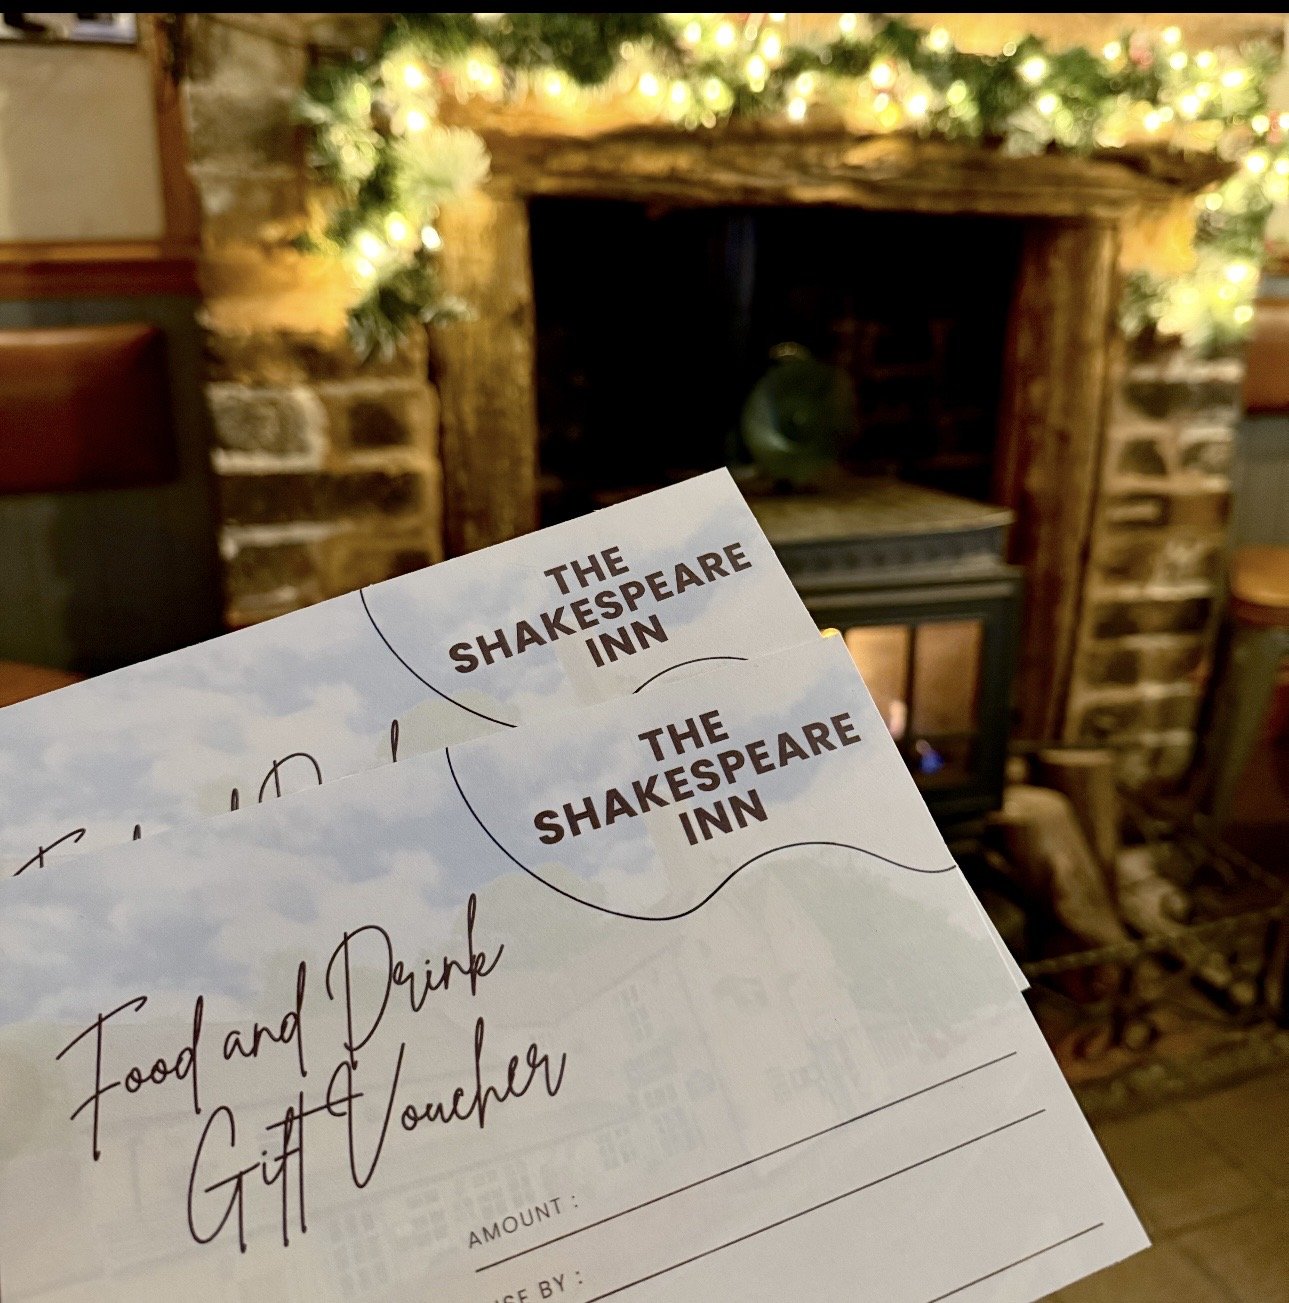 THE
SHAKESPEARE
INN
THE
SHAKESPEARE
INN
Food and Drink
Gift Voucher
AMOUNT :
BY :